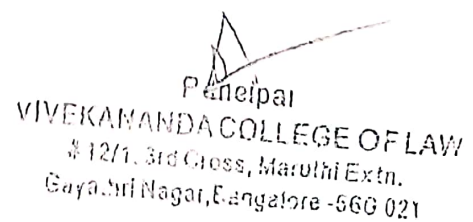 Principal
VIVEKANANDA COLLEGE OF LAW
# 12/1, 3rd Cross, Maruthi Extn.
Gayathri Nagar, Bangalore -560 021